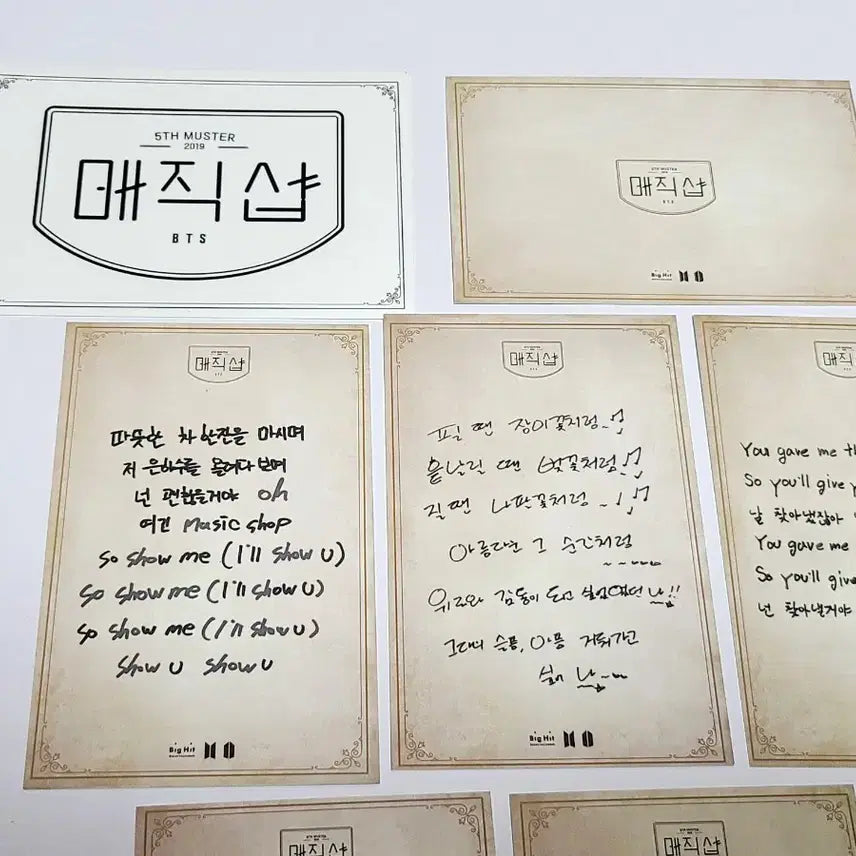 5TH MUSTER
2019
매직샵
BTS
5TH MUSTER
매직샵
BTS
Big Hit
매직샵
BTS
따뜻한 차 한잔을 마시며
저 은하수를 올려다 보며
넌 괜찮을거야 oh
여긴 Magic shop
So show me (I'll show U)
So show me (I'll show U)
So show me (I'll show U)
Show U show U
Big Hit
5TH MUSTER
매직샵
BTS
필 땐 장미꽃처럼~
흩날릴 땐 벚꽃처럼
질땐 나팔꽃처럼~
아름다운 그 순간처럼
위로와 감동이 되고 싶었었던 나!!
그대의 슬픔, 아픔 거둬가고
싶어 나~
Big Hit
매직
BTS
You gave me th
So you'll give y
날 찾아냈잖아
You gave me
So you'll give
넌 찾아낼거야
5TH MUSTER
매직샵
5TH MUSTER
매직샵